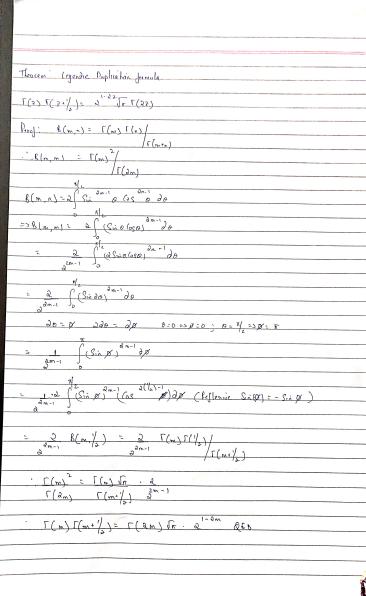 Theorem: Legendre Duplication formula
Γ(z) Γ(z+1/2) = 2^{1-2z} √π Γ(2z)
Proof: B(m,n) = Γ(m) Γ(n) / Γ(m+n)
∴ B(m,m) = Γ(m)^2 / Γ(2m)
B(m,n) = 2 ∫_0^{π/2} Sin^{2m-1} θ Cos^{2n-1} θ dθ
=> B(m,m) = 2 ∫_0^{π/2} (Sinθ Cosθ)^{2m-1} dθ
= 2/2^{2m-1} ∫_0^{π/2} (2Sinθ Cosθ)^{2m-1} dθ
= 2/2^{2m-1} ∫_0^{π/2} (Sin 2θ)^{2m-1} dθ
2θ = ø 2dθ = dø θ=0 => ø=0 ; θ=π/2 => ø=π
= 1/2^{2m-1} ∫_0^π (Sin ø)^{2m-1} dø
= 1/2^{2m-1} · 2 ∫_0^{π/2} (Sin ø)^{2m-1} (Cos ø)^{2(1/2)-1} dø (Reflexive Sin(ø) = - Sin ø)
= 2/2^{2m-1} B(m, 1/2) = 2/2^{2m-1} Γ(m) Γ(1/2) / Γ(m+1/2)
∴ Γ(m)^2 / Γ(2m) = Γ(m) √π / Γ(m+1/2) · 2 / 2^{2m-1}
∴ Γ(m) Γ(m+1/2) = Γ(2m) √π · 2^{1-2m} QED